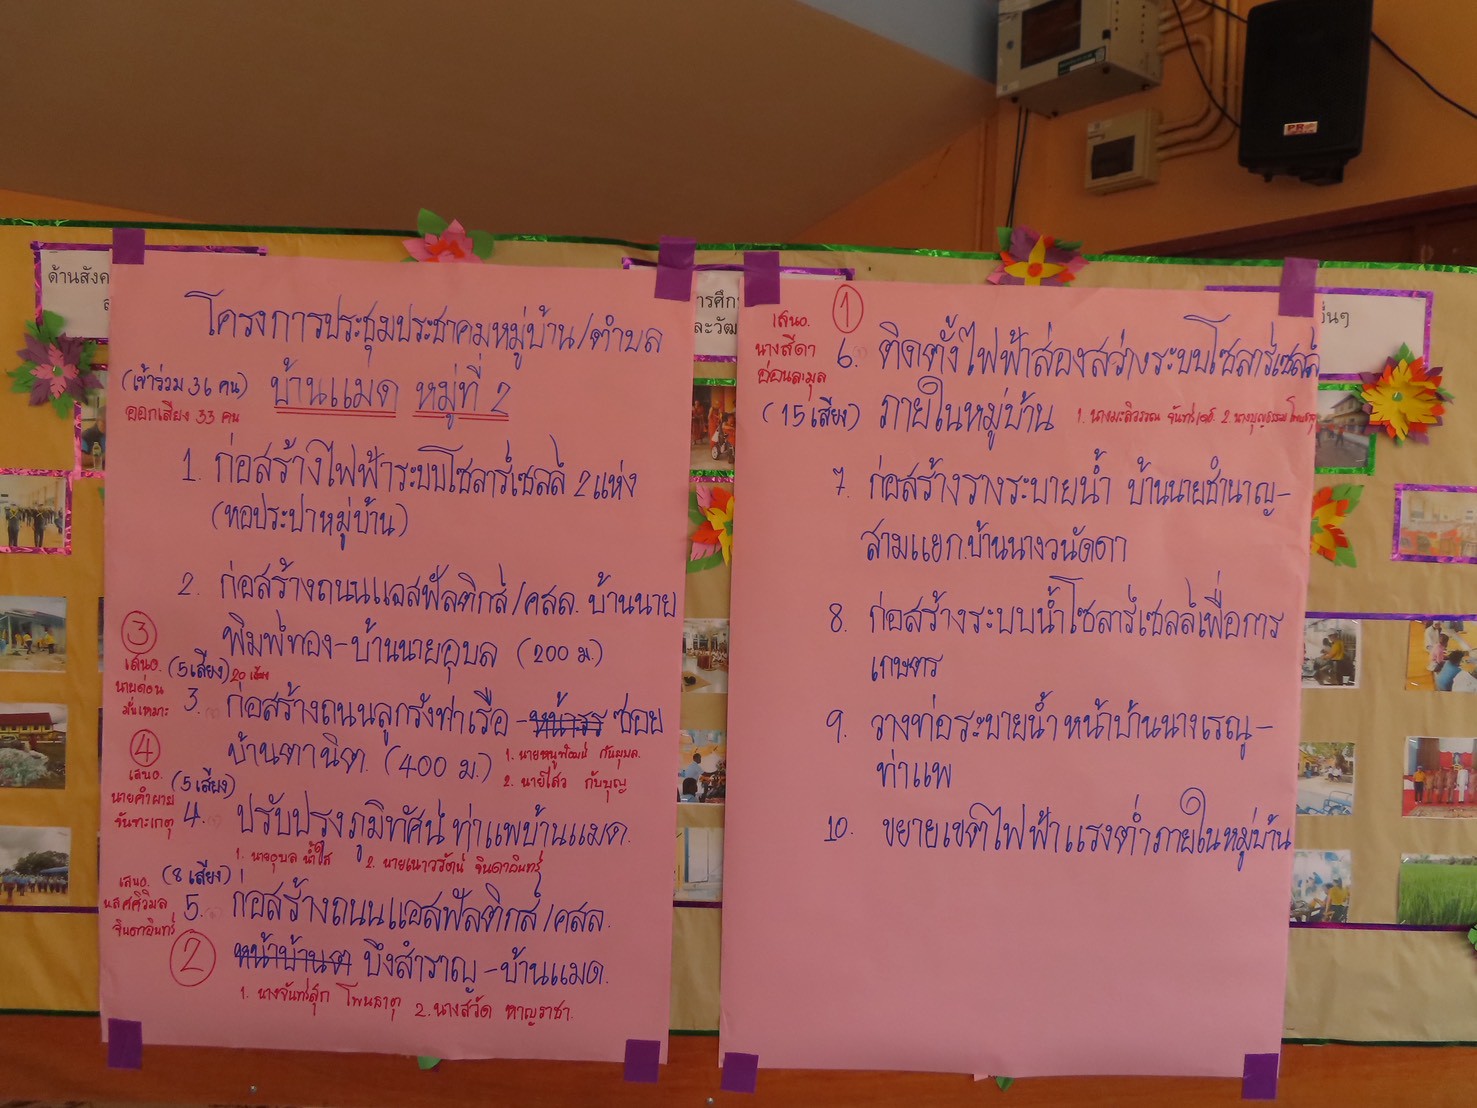 ด้านสังค
โครงการประชุมประชาคมหมู่บ้าน/ตำบล
(เข้าร่วม 36 คน) บ้านแมด หมู่ที่ 2
ออกเสียง 33 คน
1. ก่อสร้างไฟฟ้าระบบโซลาร์เซลล์ 2 แห่ง
(หอประปาหมู่บ้าน)
2. ก่อสร้างถนนแอสฟัลติกส์/คสล. บ้านนาย
พิมพ์ทอง-บ้านนายอุบล (200 ม.)
3
เสนอ. (5 เสียง) 20 เสียง
นายด่อน
มั่นเหมาะ
3. ก่อสร้างถนนลูกรังท่าเรือ - หน้ารร ซ่อย
บ้านตานิต. (400 ม.)
1. นายหนูพัฒน์ กันยุบล.
2. นายไสว กับบุญ
4
เสนอ. (5 เสียง)
นายคำผาย
จันทะเกตุ
4. ปรับปรุงภูมิทัศน์ ท่าแพบ้านแมด.
1. นายอุบล น้ำใส 2. นายเนาวรัตน์ จินดาอินทร์
เสนอ. (8 เสียง)
นส ศศิวิมล
จินดาอินทร์
5. ก่อสร้างถนนแอสฟัลติกส์/คสล.
2
หน้าบ้านตา บึงสำราญ - บ้านแมด.
1. นางจันทร์สุก โพนธาตุ 2. นางสวัด หาญราชา.
ารศึก
ละวัฒ
ื่นๆ
1
เสนอ.
นางสีดา
อ่อนละมุล
6. ติดตั้งไฟฟ้าส่องสว่างระบบโซลาร์เซลล์
(15 เสียง) ภายในหมู่บ้าน
7. ก่อสร้างรางระบายน้ำ บ้านนายชำนาญ-
สามแยก.บ้านนางวนัดดา
8. ก่อสร้างระบบน้ำโซลาร์เซลล์เพื่อการ
เกษตร
9. วางท่อระบายน้ำ หน้าบ้านนางเรณู-
ท่าแพ
10. ขยายเขตไฟฟ้าแรงต่ำภายในหมู่บ้าน